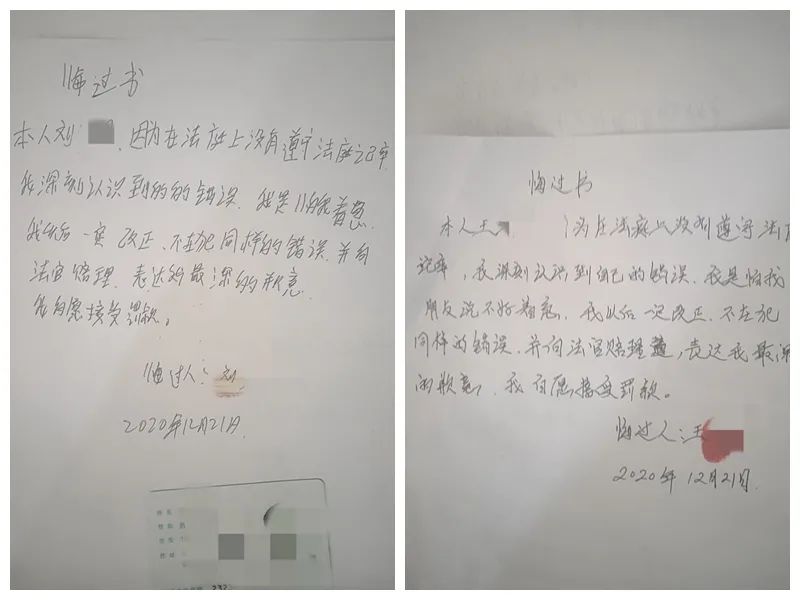 悔过书
本人刘
因为在法庭上没有遵守法庭记率
我深刻认识到的的错误.我是
着急.
我以后一定改正.不在犯同样的错误.并向
法官赔理.表达我最深的歉意
我自愿接受罚款。
悔过人:刘
2020年12月21日.
悔过书
本人王
为在法庭上没有遵守法
记率,我深刻认识到自己的错误.我是怕我
朋友说不好着急.我以后一定改正.不在犯
同样的错误.并向法官赔理
,表达我最深
的歉意,我自愿接受罚款。
悔过人:王
2020年12月21日.